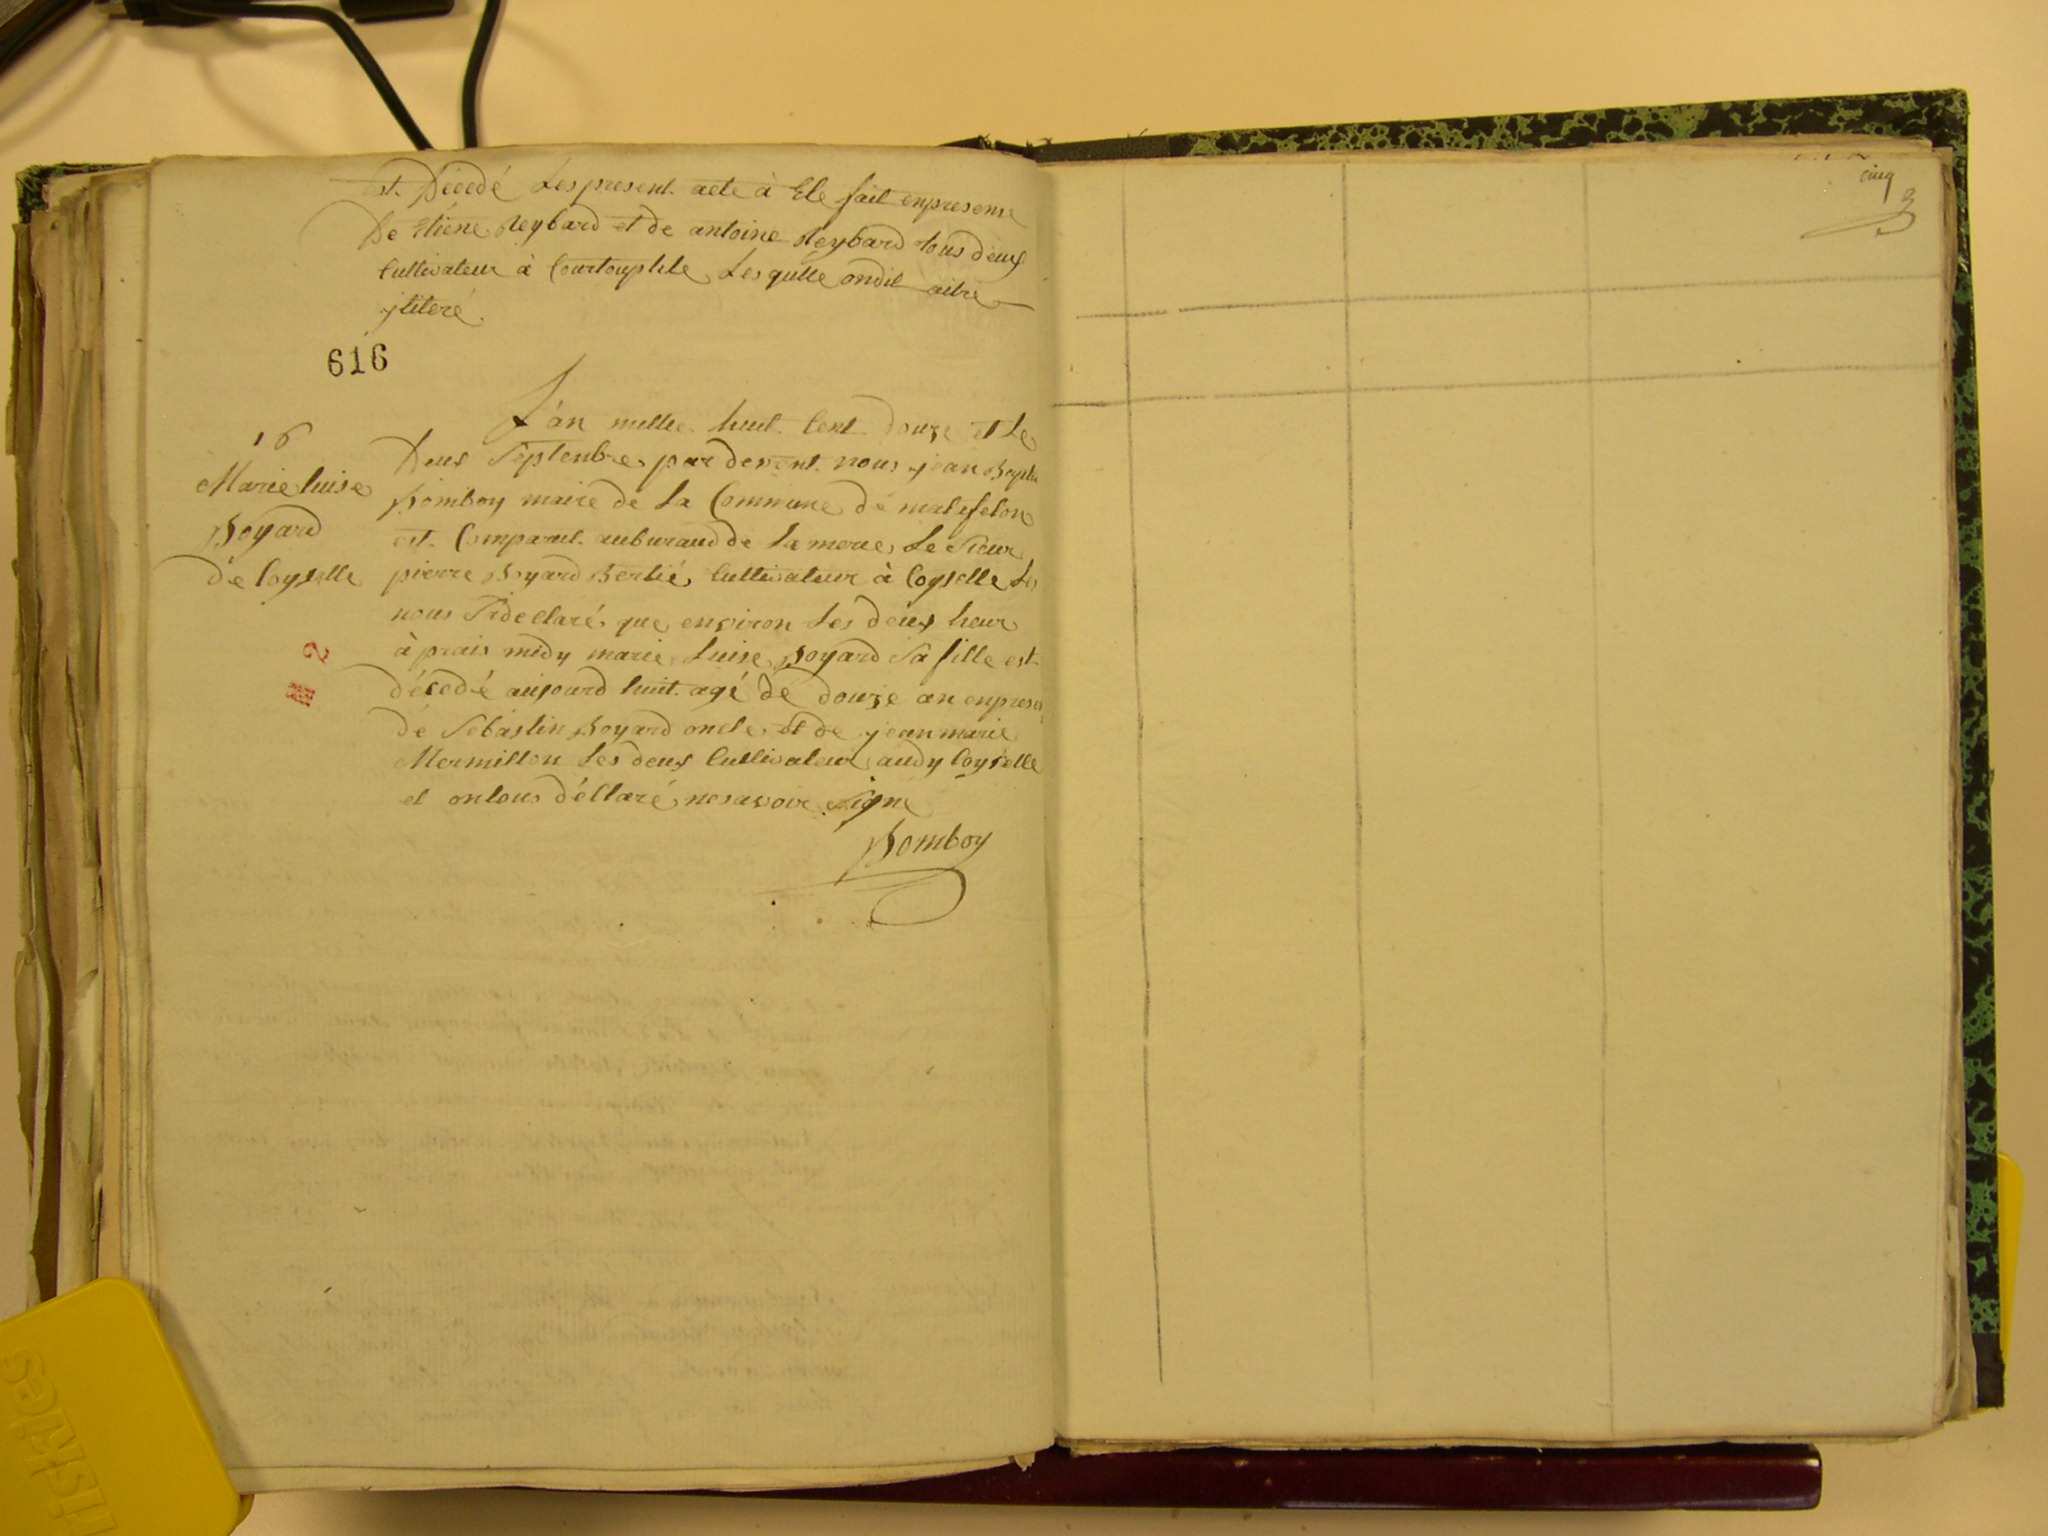 est. Décedé Les present. acte à Ete fait enpresence
De Etiene Reybard et de antoine Reybard tous deux
Cultivateur à Courtouphle Les quelle ondit aitre
jliteré.
616
L'àn mille. huit. Cent. Douze et Le
16
Marie luise
Boyard
de Coyselle
Deux Septenbre, par devent. nous jean Bapte
Bomboy maire de La Commune de matefelon
est. Comparut. auburaud de La merie, Le Sieur
pierre Boyard Berlié, Cultivateur à Coyselle Les
nous Sidecclaré, que environ Les deux heur
à prais midy marie Luise Boyard Sa fille est.
décedé aujourd huit. agé de douze an enpresen
de Sebastin Boyard oncle, et de jean marie
Mermillon Les deux Cultivateur, audy Coyselle
et ontous déllaré, nesavoir Signe
Bomboy
2
cinq
3